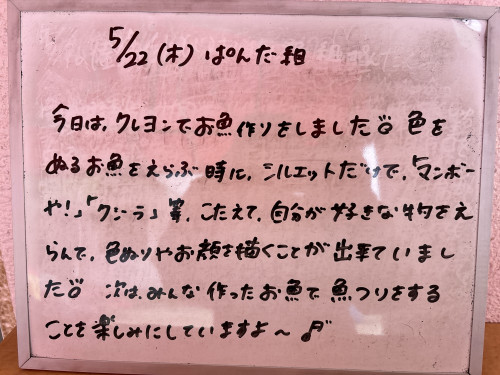 5/22(木) ぱんだ組
今日は、クレヨンでお魚作りをしました♂ 色を
ぬるお魚をえらぶ時に、シルエットだけで、「マンボー
や!」「クジラ」等、こたえて、自分が好きな物をえ
らんで、色ぬりやお顔を描くことが出来ていまし
た♂ 次は、みんな作ったお魚で魚つりをする
ことを楽しみにしていますよ〜♪